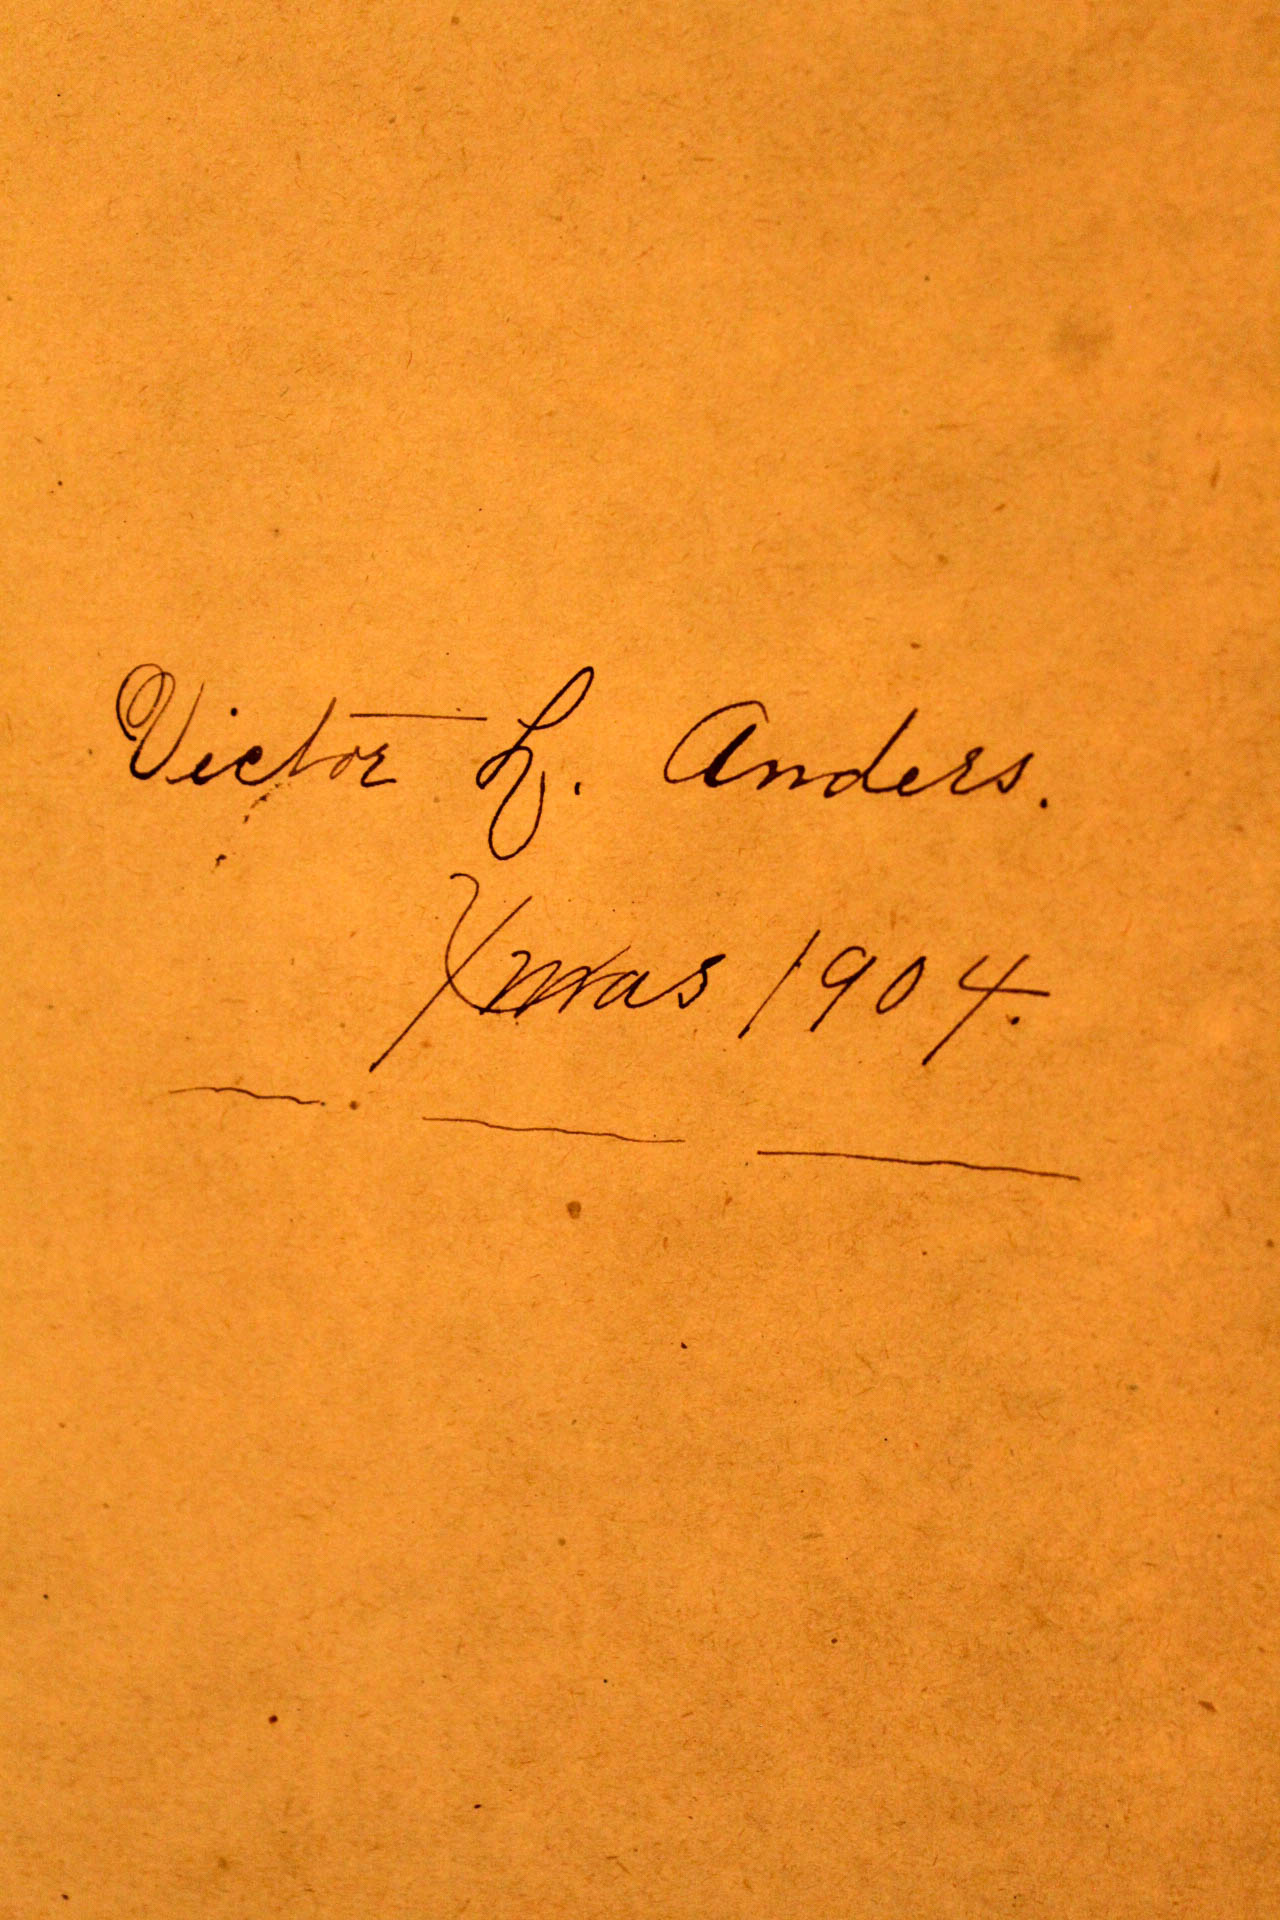 Victor L. Anders.
Xmas 1904.